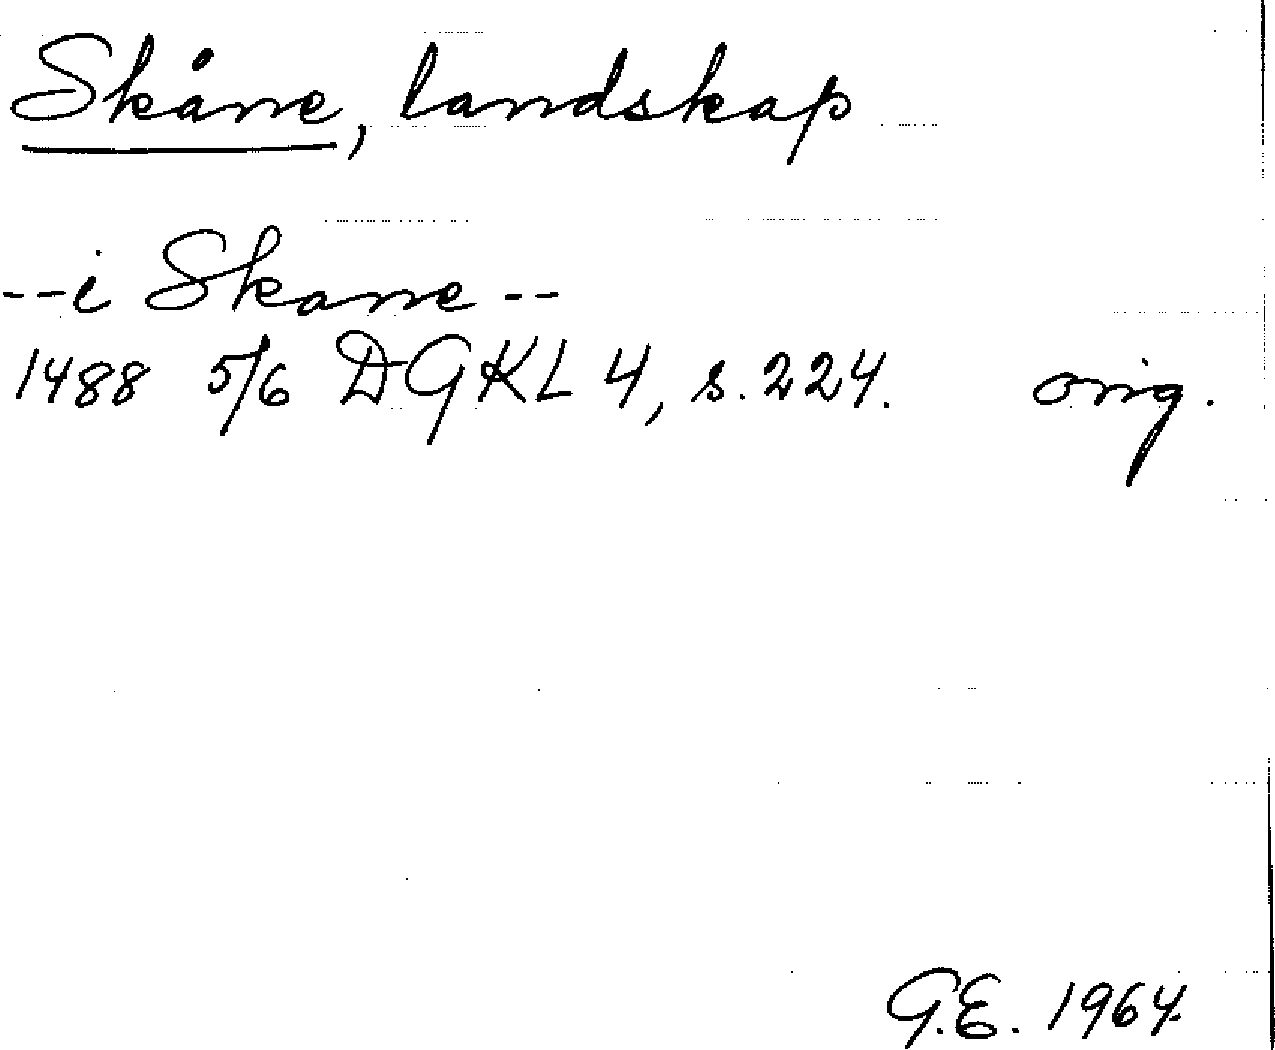 Skåne, landskap
--i Skane--
1488 5/6 DGKL 4, s.224. orig.
G.E. 1964